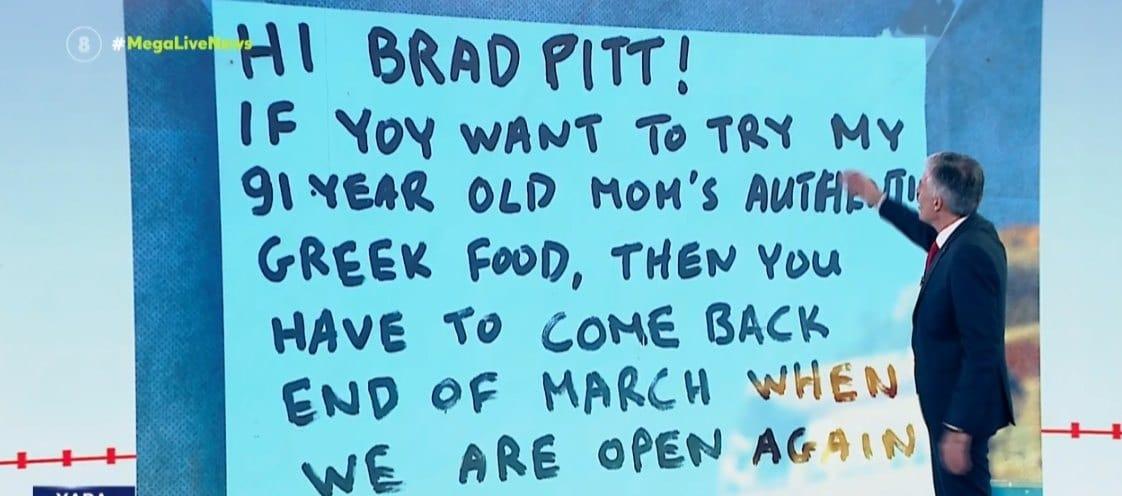 8 #MegaLiveNews
HI BRAD PITT!
IF YOY WANT TO TRY MY
91 YEAR OLD MOM'S
GREEK FOOD, THEN YOU
HAVE TO COME BACK
END OF MARCH WHEN
WE ARE OPEN AGAIN